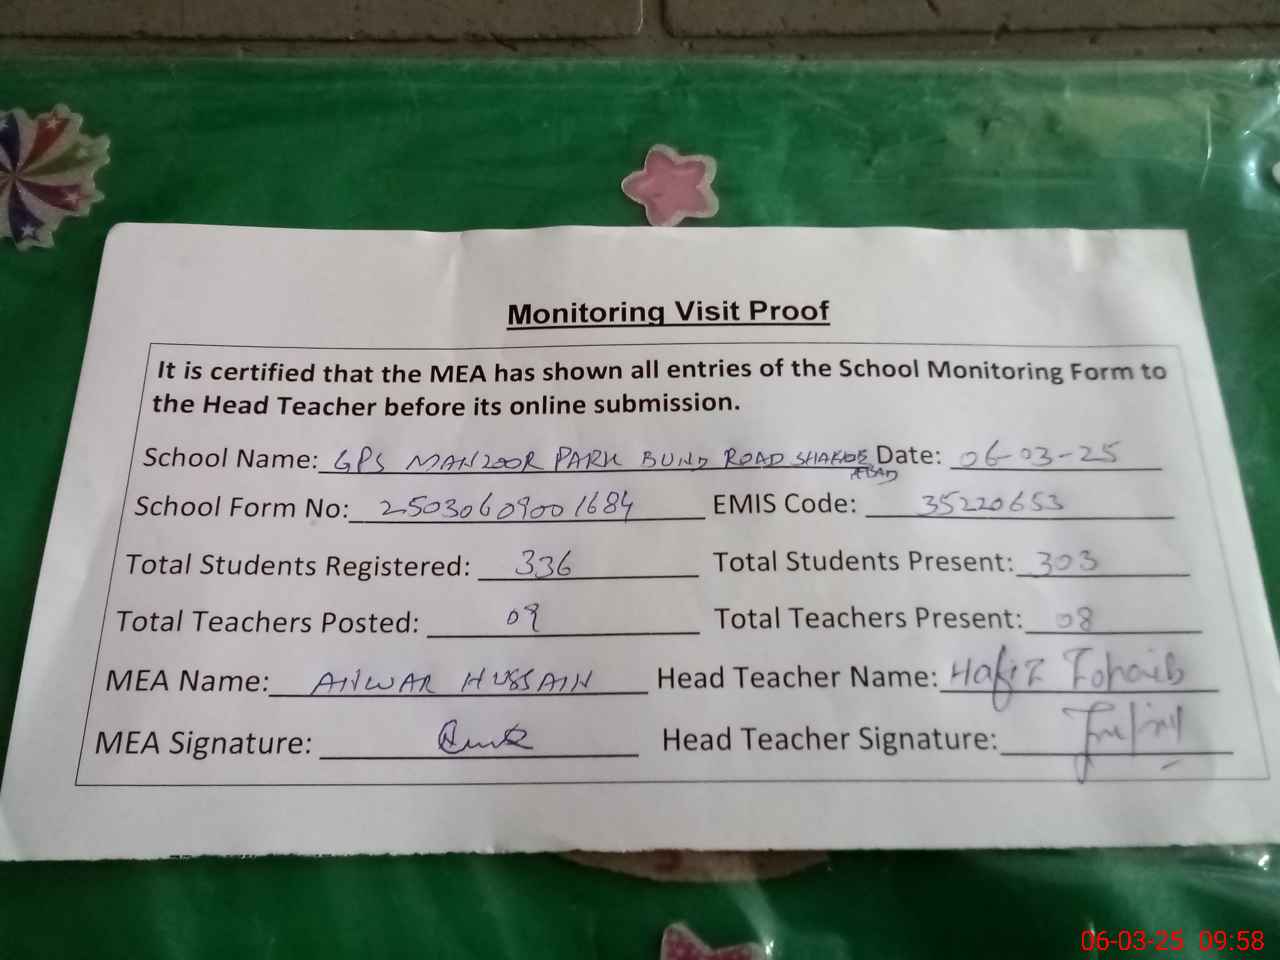 Monitoring Visit Proof
It is certified that the MEA has shown all entries of the School Monitoring Form to
the Head Teacher before its online submission.
School Name: GPS MANZOOR PARK BUND ROAD Date: 06-03-25
School Form No: 2503060900 1684 EMIS Code: 35220653
Total Students Registered: 336 Total Students Present: 303
Total Teachers Posted: 09 Total Teachers Present: 08
MEA Name: ANWAR HUSSAIN Head Teacher Name: Hafiz Zohaib
MEA Signature: Head Teacher Signature:
06-03-25 09:58